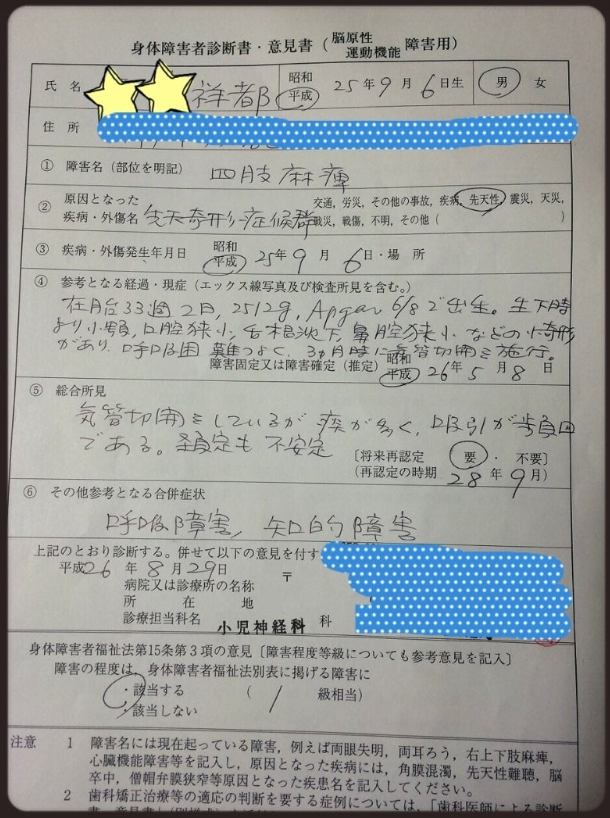 身体障害者診断書・意見書(脳原性運動機能障害用)
氏名 祥都 昭和 平成 25年9月6日生 男 女
住所
① 障害名(部位を明記) 四肢麻痺
② 原因となった疾病・外傷名 先天奇形症候群 交通,労災,その他の事故,疾病,先天性,震災,天災,
戦災,戦傷,不明,その他( )
③ 疾病・外傷発生年月日 昭和 平成 25年9月6日・場所
④ 参考となる経過・現症(エックス線写真及び検査所見を含む。)
在胎33週2日,2512g,Apgar 6/8で出生。生下時
より小顎,口腔狭小,舌根沈下,鼻腔狭小などの小奇形
があり,呼吸困難つよく,3ヶ月時に気管切開を施行。
障害固定又は障害確定(推定) 昭和 平成 26年5月8日
⑤ 総合所見
気管切開をしているが痰が多く,吸引が頻回
である。頚定も不安定
〔将来再認定 要・不要〕
(再認定の時期 28年9月)
⑥ その他参考となる合併症状
呼吸障害,知的障害
上記のとおり診断する。併せて以下の意見を付す
平成26年8月29日
病院又は診療所の名称 〒
所在地
診療担当科名 小児神経科 科
身体障害者福祉法第15条第3項の意見〔障害程度等級についても参考意見を記入〕
障害の程度は、身体障害者福祉法別表に掲げる障害に
・該当する (1級相当)
・該当しない
注意 1 障害名には現在起っている障害,例えば両眼失明,両耳ろう,右上下肢麻痺,
心臓機能障害等を記入し,原因となった疾病には,角膜混濁,先天性難聴,脳
卒中,僧帽弁膜狭窄等原因となった疾患名を記入してください。
2 歯科矯正治療等の適応の判断を要する症例については,「歯科医師による診断